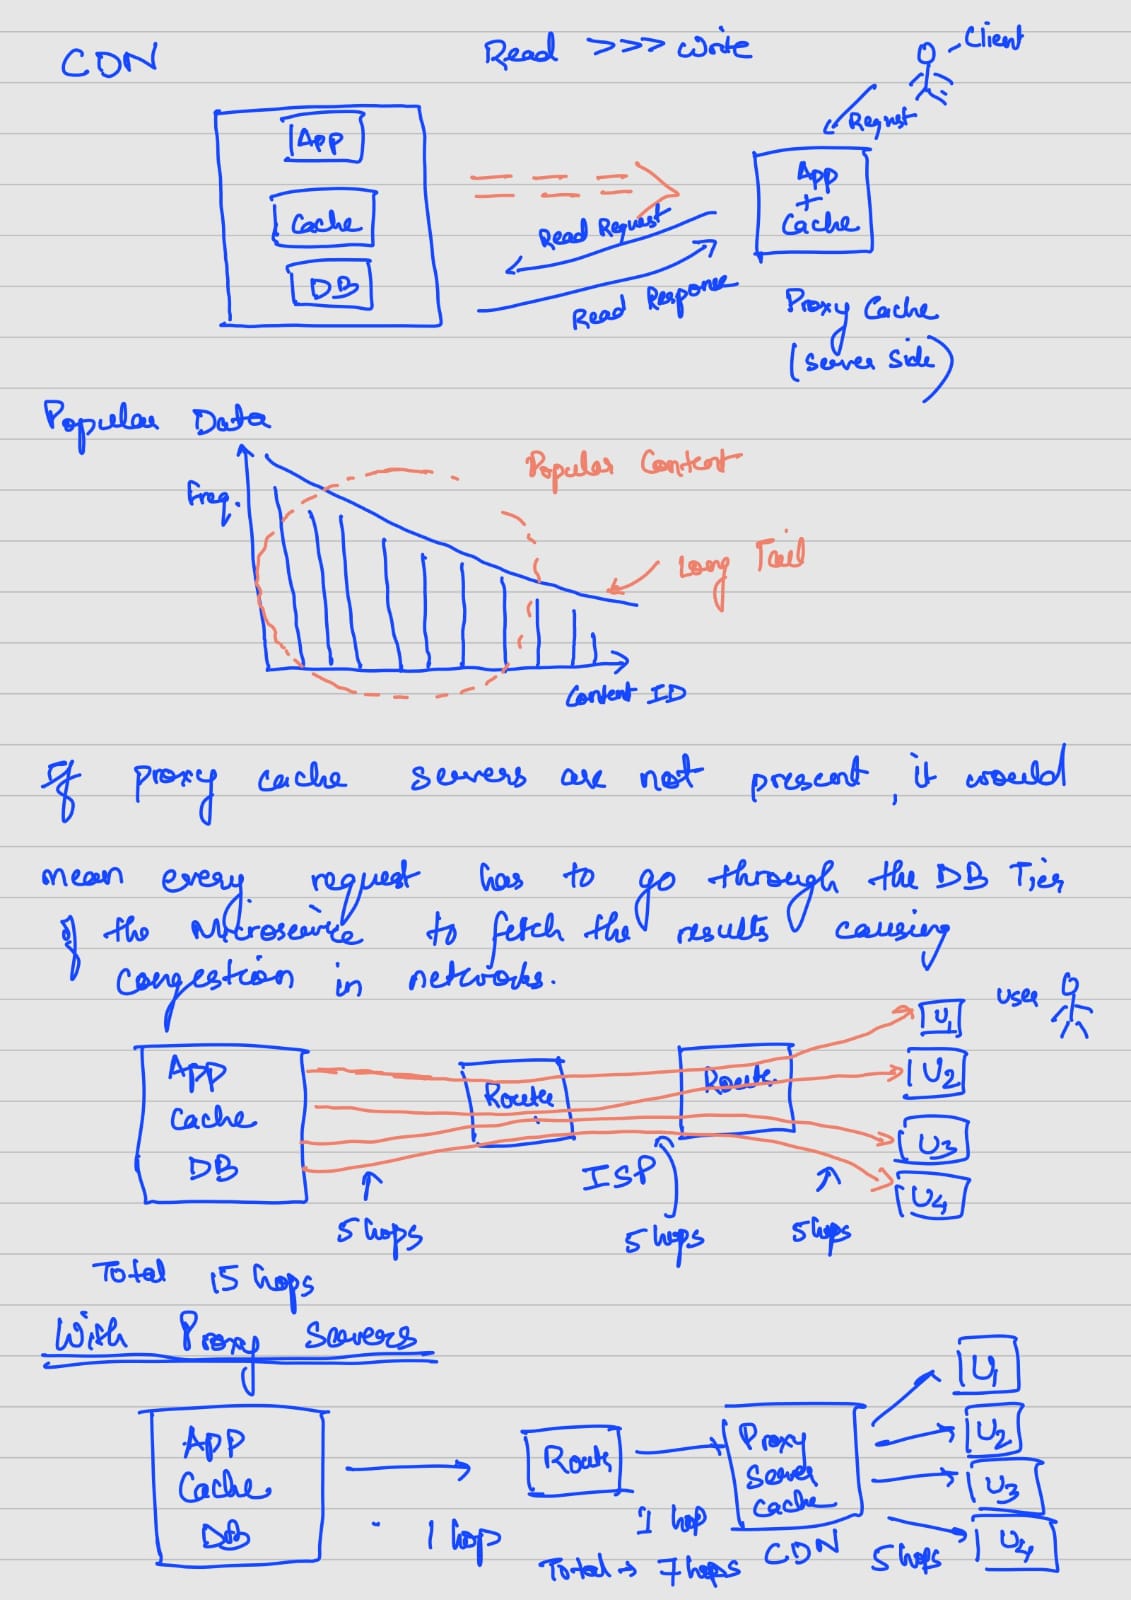 CDN
Read >>> Write
Client
Request
App
Cache
DB
App
+
Cache
Read Request
Read Response
Proxy Cache
(Server Side)
Popular Data
Freq.
Popular Content
Long Tail
Content ID
If proxy cache servers are not present, it would
mean every request has to go through the DB Tier
of the Microservice to fetch the results causing
congestion in networks.
User
U1
App
Cache
DB
Router
Router
U2
U3
U4
ISP
5 hops
5 hops
5 hops
Total 15 hops
With Proxy Servers
APP
Cache
DB
1 hop
Router
1 hop
Proxy
Server
Cache
CDN
U1
U2
U3
U4
5 hops
Total → 7 hops